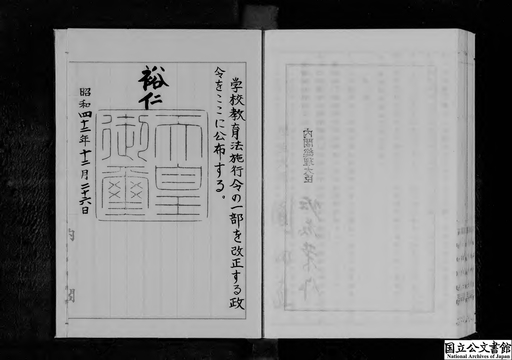 学校教育法施行令の一部を改正する政
令をここに公布する。
裕仁
天皇
御璽
昭和四十二年十二月二十六日
内閣総理大臣
国立公文書館
National Archives of Japan